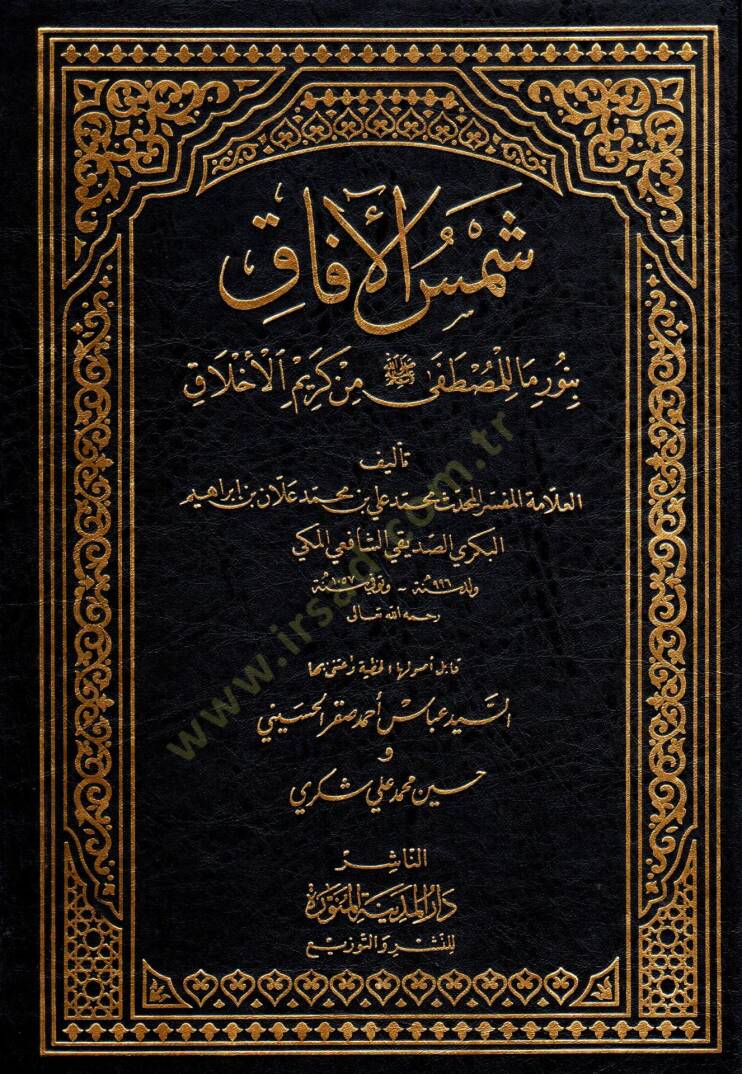 شَمْسُ الْأَفَاقِ
بِنُورِ مَا لِلْمُصْطَفَى ﷺ مِنْ كَرِيمِ الْأَخْلَاقِ
تأليف
العلامة المفسر المحدث محمد علي بن محمد علان بن إبراهيم
البكري الصديقي الشافعي المكي
ولد سنة ٩٩٦ - وتوفي سنة ١٠٥٧
رحمه الله تعالى
قابل أصولها الخطية واعتنى بها
السيد عباس أحمد صقر الحسيني
و
حسين محمد علي شكري
الناشر
دار المدينة المنورة
للنشر والتوزيع
www.irsad.com.tr